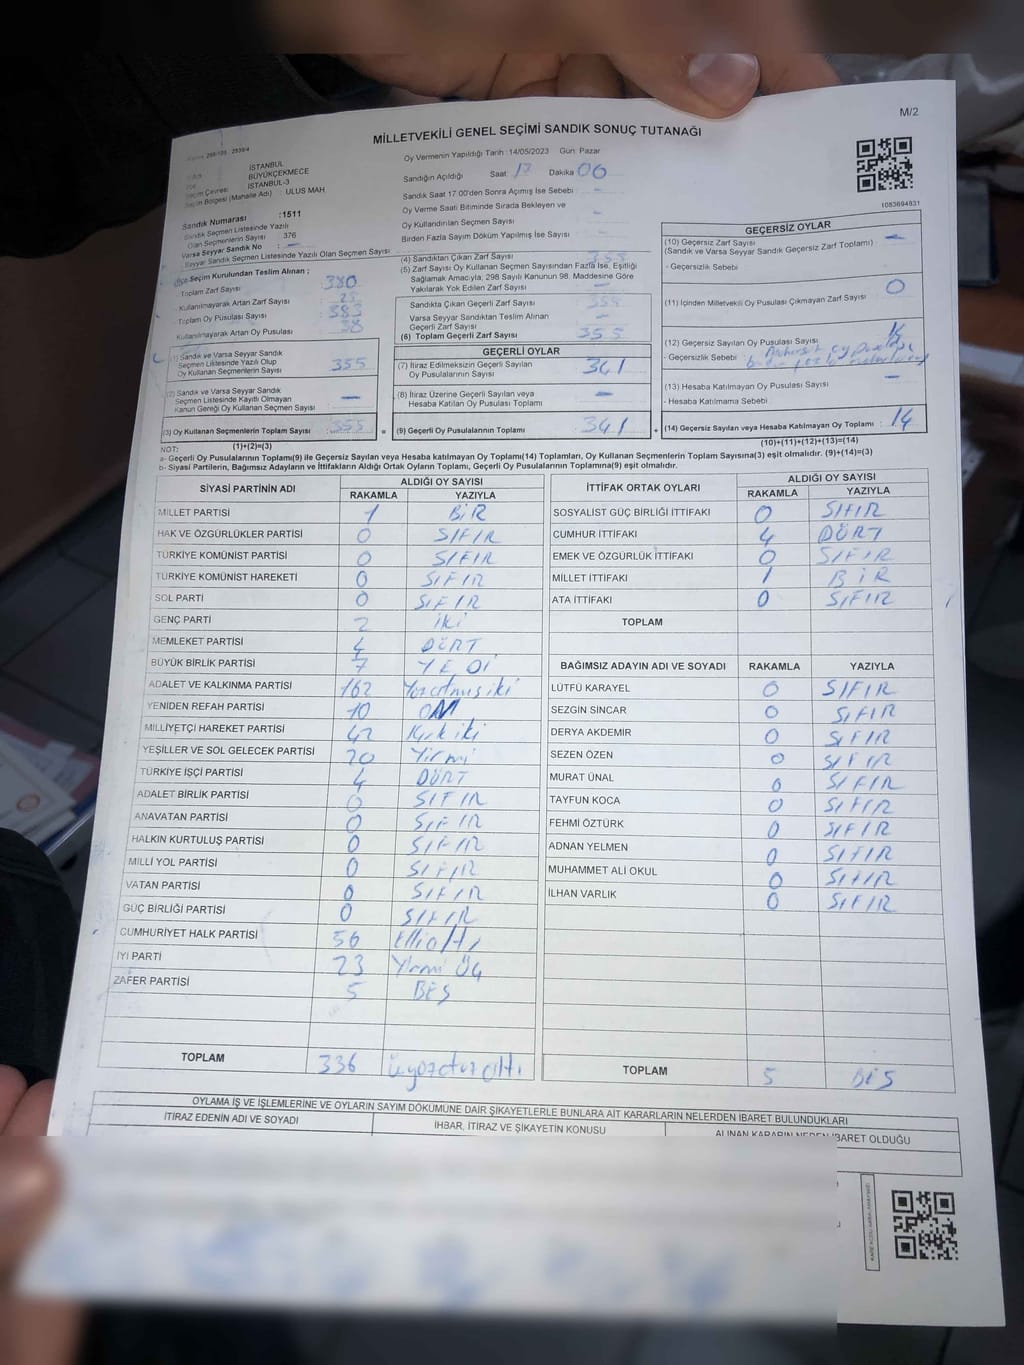 M/2
MİLLETVEKİLİ GENEL SEÇİMİ SANDIK SONUÇ TUTANAĞI
İSTANBUL
BÜYÜKÇEKMECE
Seçim Çevresi İSTANBUL-3
Seçim Bölgesi (Mahalle Adı) : ULUS MAH.
Sandık Numarası :1511
Sandık Seçmen Listesinde Yazılı
Olan Seçmenlerin Sayısı 376
Varsa Seyyar Sandık No : –
Seyyar Sandık Seçmen Listesinde Yazılı Olan Seçmen Sayısı
Oy Vermenin Yapıldığı Tarih :14/05/2023 Gün: Pazar
Sandığın Açıldığı Saat: 17 Dakika 06
Sandık Saat 17:00'den Sonra Açımış İse Sebebi : –
Oy Verme Saati Bitiminde Sırada Bekleyen ve
Oy Kullandırılan Seçmen Sayısı : –
Birden Fazla Sayım Döküm Yapılmış İse Sayısı : –
1083694831
İlçe Seçim Kurulundan Teslim Alınan ;
Toplam Zarf Sayısı : 380
Kullanılmayarak Artan Zarf Sayısı : 25
Toplam Oy Pusulası Sayısı : 383
Kullanılmayarak Artan Oy Pusulası : 38
(1) Sandık ve Varsa Seyyar Sandık
Seçmen Listesinde Yazılı Olup
Oy Kullanan Seçmenlerin Sayısı : 355
(2) Sandık ve Varsa Seyyar Sandık
Seçmen Listesinde Kayıtlı Olmayan
Kanun Gereği Oy Kullanan Seçmen Sayısı : –
(3) Oy Kullanan Seçmenlerin Toplam Sayısı : 355
(1)+(2)=(3)
(4) Sandıktan Çıkan Zarf Sayısı : 355
(5) Zarf Sayısı Oy Kullanan Seçmen Sayısından Fazla İse, Eşitliği
Sağlamak Amacıyla, 298 Sayılı Kanunun 98. Maddesine Göre
Yakılarak Yok Edilen Zarf Sayısı : –
Sandıkta Çıkan Geçerli Zarf Sayısı
Varsa Seyyar Sandıktan Teslim Alınan
Geçerli Zarf Sayısı : –
(6) Toplam Geçerli Zarf Sayısı : 355
GEÇERLİ OYLAR
(7) İtiraz Edilmeksizin Geçerli Sayılan
Oy Pusulalarının Sayısı : 341
(8) İtiraz Üzerine Geçerli Sayılan veya
Hesaba Katılan Oy Pusulası Toplamı : –
= (9) Geçerli Oy Pusulalarının Toplamı : 341
GEÇERSİZ OYLAR
(10) Geçersiz Zarf Sayısı : –
(Sandık ve Varsa Seyyar Sandık Geçersiz Zarf Toplamı)
- Geçersizlik Sebebi :
(11) İçinden Milletvekili Oy Pusulası Çıkmayan Zarf Sayısı : 0
(12) Geçersiz Sayılan Oy Pusulası Sayısı : 14
- Geçersizlik Sebebi :
(13) Hesaba Katılmayan Oy Pusulası Sayısı : –
- Hesaba Katılmama Sebebi
+ (14) Geçersiz Sayılan veya Hesaba Katılmayan Oy Toplamı : 14
(10)+(11)+(12)+(13)=(14)
NOT:
a- Geçerli Oy Pusulalarının Toplamı(9) ile Geçersiz Sayılan veya Hesaba Katılmayan Oy Toplamı(14) Toplamları, Oy Kullanan Seçmenlerin Toplam Sayısına(3) eşit olmalıdır. (9)+(14)=(3)
b- Siyasi Partilerin, Bağımsız Adayların ve İttifakların Aldığı Ortak Oyların Toplamı, Geçerli Oy Pusulalarının Toplamına(9) eşit olmalıdır.
SİYASİ PARTİNİN ADI ALDIĞI OY SAYISI
RAKAMLA YAZIYLA
MİLLET PARTİSİ 1 BİR
HAK VE ÖZGÜRLÜKLER PARTİSİ 0 SIFIR
TÜRKİYE KOMÜNİST PARTİSİ 0 SIFIR
TÜRKİYE KOMÜNİST HAREKETİ 0 SIFIR
SOL PARTİ 0 SIFIR
GENÇ PARTİ 2 İKİ
MEMLEKET PARTİSİ 4 DÖRT
BÜYÜK BİRLİK PARTİSİ 7 YEDİ
ADALET VE KALKINMA PARTİSİ 162 Yüzaltmışiki
YENİDEN REFAH PARTİSİ 10 ON
MİLLİYETÇİ HAREKET PARTİSİ 42 Kırkiki
YEŞİLLER VE SOL GELECEK PARTİSİ 20 Yirmi
TÜRKİYE İŞÇİ PARTİSİ 4 DÖRT
ADALET BİRLİK PARTİSİ 0 SIFIR
ANAVATAN PARTİSİ 0 SIFIR
HALKIN KURTULUŞ PARTİSİ 0 SIFIR
MİLLİ YOL PARTİSİ 0 SIFIR
VATAN PARTİSİ 0 SIFIR
GÜÇ BİRLİĞİ PARTİSİ 0 SIFIR
CUMHURİYET HALK PARTİSİ 56 Elli altı
İYİ PARTİ 23 Yirmi Üç
ZAFER PARTİSİ 5 BEŞ
TOPLAM 336 üçyüzotuz altı
İTTİFAK ORTAK OYLARI ALDIĞI OY SAYISI
RAKAMLA YAZIYLA
SOSYALİST GÜÇ BİRLİĞİ İTTİFAKI 0 SIFIR
CUMHUR İTTİFAKI 4 DÖRT
EMEK VE ÖZGÜRLÜK İTTİFAKI 0 SIFIR
MİLLET İTTİFAKI 1 BİR
ATA İTTİFAKI 0 SIFIR
TOPLAM
BAĞIMSIZ ADAYIN ADI VE SOYADI RAKAMLA YAZIYLA
LÜTFÜ KARAYEL 0 SIFIR
SEZGİN SİNCAR 0 SIFIR
DERYA AKDEMİR 0 SIFIR
SEZEN ÖZEN 0 SIFIR
MURAT ÜNAL 0 SIFIR
TAYFUN KOCA 0 SIFIR
FEHMİ ÖZTÜRK 0 SIFIR
ADNAN YELMEN 0 SIFIR
MUHAMMET ALİ OKUL 0 SIFIR
İLHAN VARLIK 0 SIFIR
TOPLAM 5 BEŞ
OYLAMA İŞ VE İŞLEMLERİNE VE OYLARIN SAYIM DÖKÜMÜNE DAİR ŞİKAYETLERLE BUNLARA AİT KARARLARIN NELERDEN İBARET BULUNDUKLARI
İTİRAZ EDENİN ADI VE SOYADI İHBAR, İTİRAZ VE ŞİKAYETİN KONUSU ALINAN KARARIN NEDEN İBARET OLDUĞU